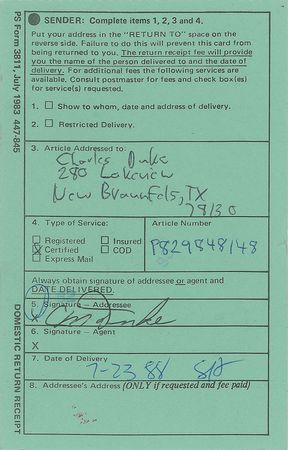 PS Form 3811, July 1983 447-845
SENDER: Complete items 1, 2, 3 and 4.
Put your address in the "RETURN TO" space on the
reverse side. Failure to do this will prevent this card from
being returned to you. The return receipt fee will provide
you the name of the person delivered to and the date of
delivery. For additional fees the following services are
available. Consult postmaster for fees and check box(es)
for service(s) requested.
1. Show to whom, date and address of delivery.
2. Restricted Delivery.
3. Article Addressed to:
Charles Duke
280 Lakeview
New Braunfels, TX
78130
4. Type of Service:
Article Number
Registered Insured
Certified COD
Express Mail
P829848148
Always obtain signature of addressee or agent and
DATE DELIVERED.
5. Signature – Addressee
X CM Duke
6. Signature – Agent
X
7. Date of Delivery
7-23 88
8. Addressee's Address (ONLY if requested and fee paid)
DOMESTIC RETURN RECEIPT